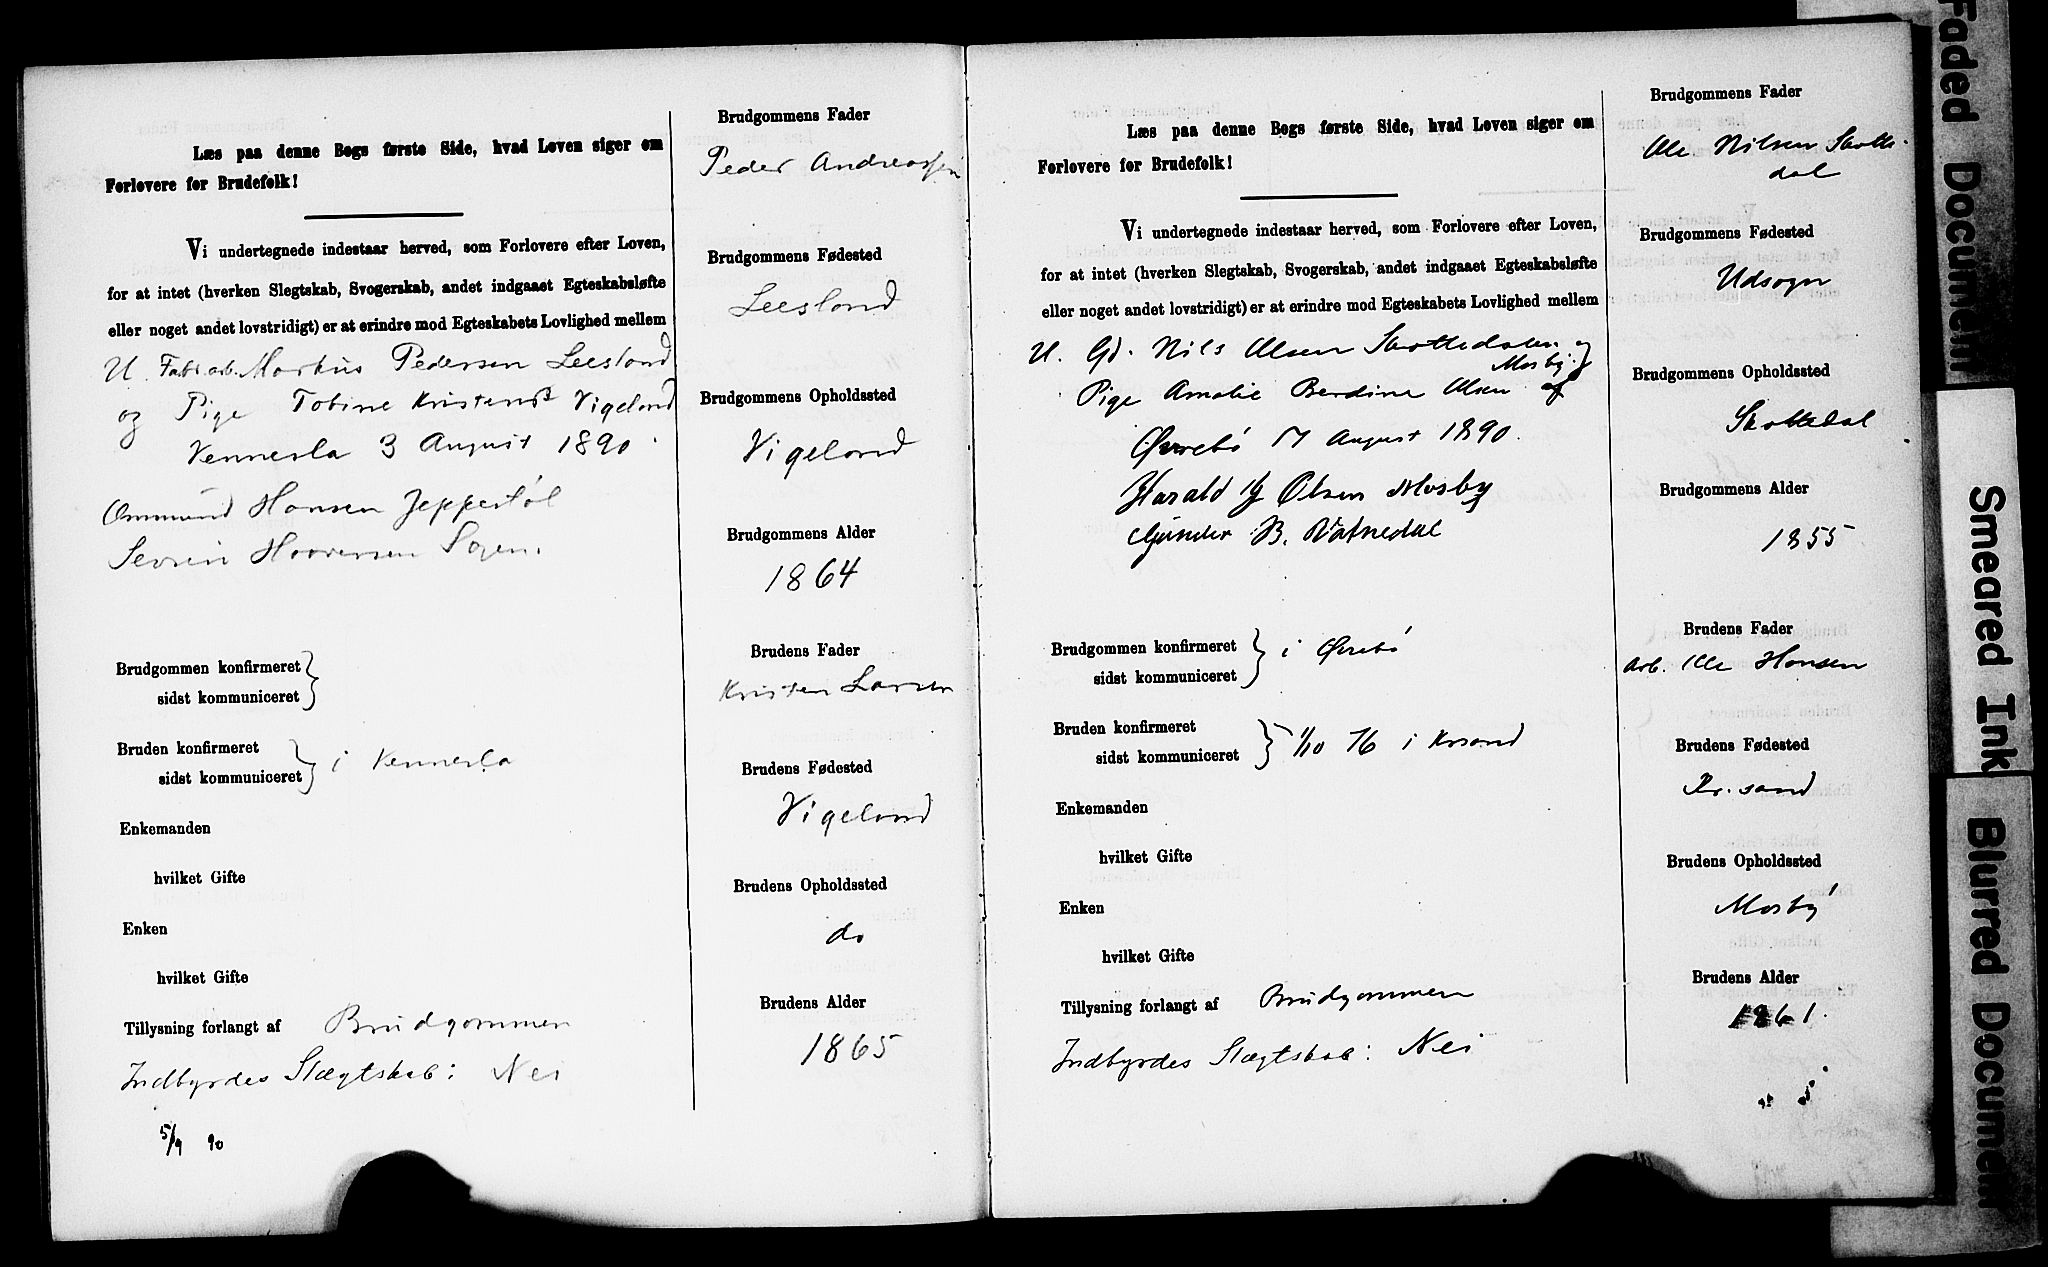 Læs paa denne Bogs første Side, hvad Loven siger om
Forlovere for Brudefolk!
Vi undertegnede indestaar herved, som Forlovere efter Loven,
for at intet (hverken Slegtskab, Svogerskab, andet indgaaet Egteskabsløfte
eller noget andet lovstridigt) er at erindre mod Egteskabets Lovlighed mellem
U. Fabr.arb. Markus Pedersen Leesland
og Pige Tobine Kristensd. Vigeland
Vennesla 3 August 1890.
Ommund Hansen Jeppestøl
Severin Haaversen
Brudgommen konfirmeret
sidst kommuniceret
Bruden konfirmeret
sidst kommuniceret } i Vennesla
Enkemanden
hvilket Gifte
Enken
hvilket Gifte
Tillysning forlangt af Brudgommen
Indbyrdes Slægtskab: Nei
5/9 90
Brudgommens Fader
Peder Andreassen
Brudgommens Fødested
Leesland
Brudgommens Opholdssted
Vigeland
Brudgommens Alder
1864
Brudens Fader
Kristen Larsen
Brudens Fødested
Vigeland
Brudens Opholdssted
do
Brudens Alder
1865
Læs paa denne Bogs første Side, hvad Loven siger om
Forlovere for Brudefolk!
Vi undertegnede indestaar herved, som Forlovere efter Loven,
for at intet (hverken Slegtskab, Svogerskab, andet indgaaet Egteskabsløfte
eller noget andet lovstridigt) er at erindre mod Egteskabets Lovlighed mellem
U. Gd. Nils Olsen Skottedalen og
Pige Amalie Berdine Olsen af Mosby
Øvrebø 17 August 1890.
Harald Olsen Mosby
Gunder B. Vatnedal
Brudgommen konfirmeret
sidst kommuniceret } i Øvrebø
Bruden konfirmeret
sidst kommuniceret } 1/10 76 i Krsand
Enkemanden
hvilket Gifte
Enken
hvilket Gifte
Tillysning forlangt af Brudgommen
Indbyrdes Slægtskab: Nei
Brudgommens Fader
Ole Nilsen Skotte-
dal
Brudgommens Fødested
Udsogn
Brudgommens Opholdssted
Skottedal
Brudgommens Alder
1855
Brudens Fader
Arb. Ole Hansen
Brudens Fødested
Kr.sand
Brudens Opholdssted
Mosby
Brudens Alder
1861.
Faded Document
Smeared Ink
Blurred Document